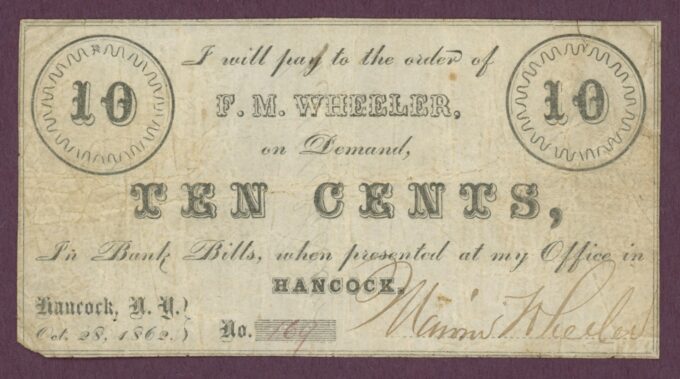 10
10
I will pay to the order of
F. M. WHEELER,
on Demand,
TEN CENTS,
In Bank Bills, when presented at my Office in
HANCOCK.
Hancock, N. Y.}
Oct. 28, 1862.}
No. 169
Wheeler